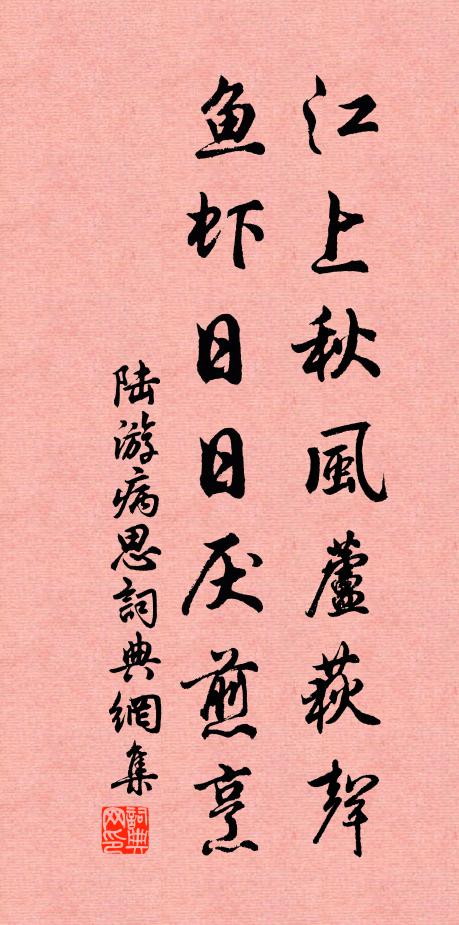 江上秋風蘆荻聲
鱼虾日日厌煎烹
陆游病思詞典網集
詞典网印